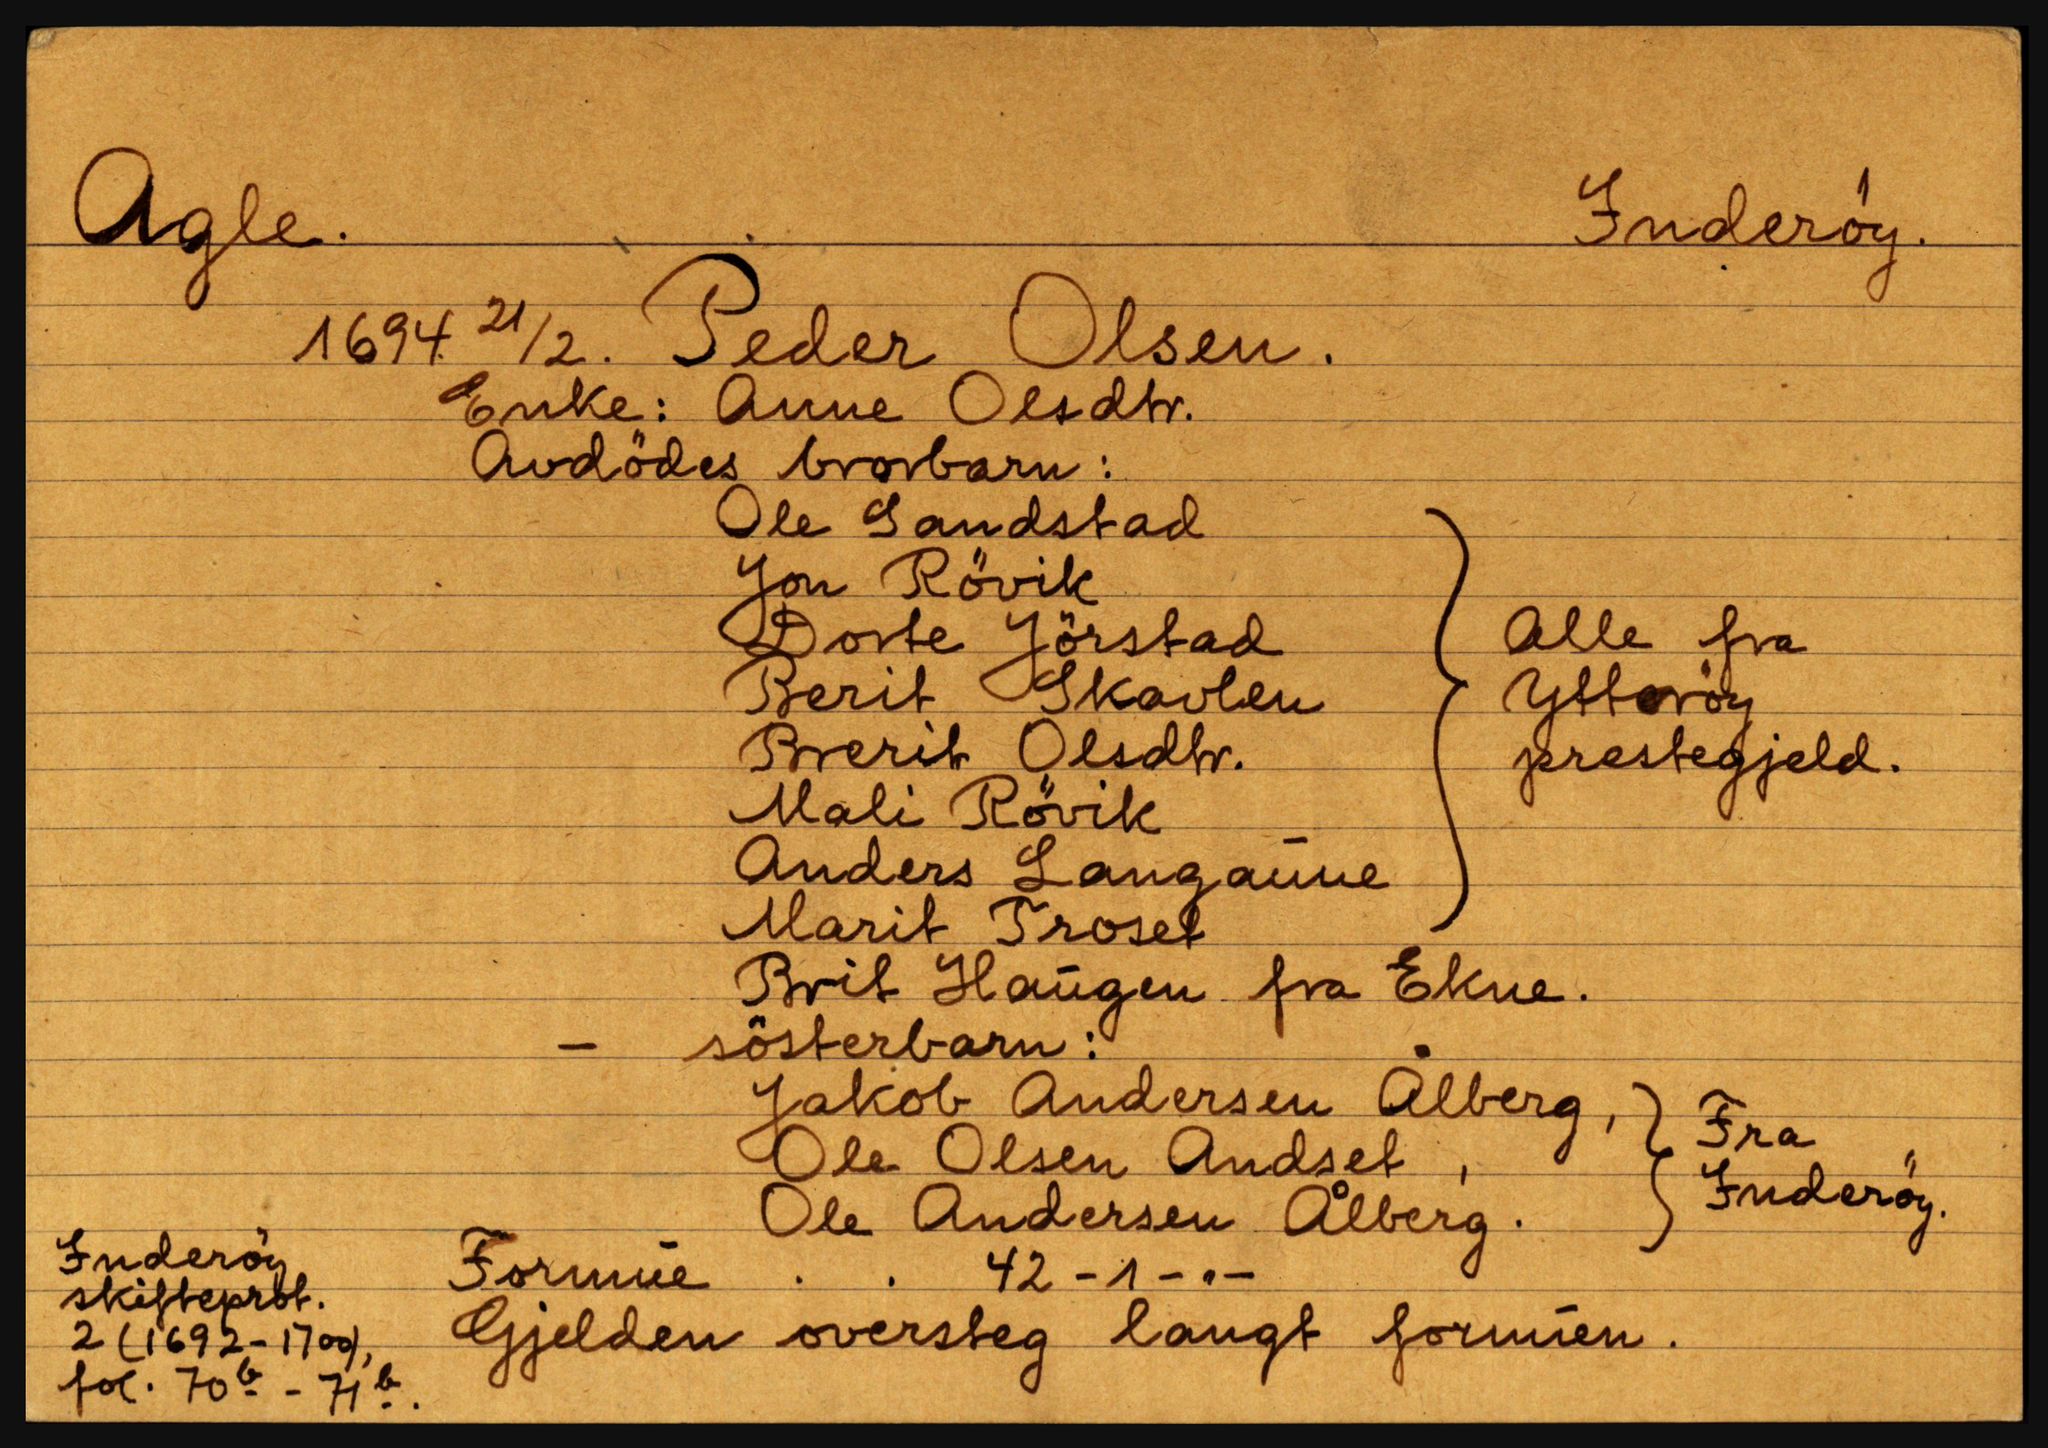 Agle. Inderöy.
1694 21/2. Peder Olsen.
Enke: Anne Olsdtr.
Avdödes brorbarn:
Ole Sandstad
Jon Rövik
Dorte Jörstad
Berit Skavlen
Brerit Olsdtr.
Mali Rövik
Anders Langaune
Marit Troset
Alle fra
Ytteröy
prestegjeld.
Brit Haugen fra Ekne.
— sösterbarn:
Jakob Andersen Ålberg,
Ole Olsen Andset,
Ole Andersen Ålberg.
Fra
Inderöy.
Formue . . 42-1-"-
Gjelden oversteg langt formuen.
Inderöy
skifteprot.
2 (1692-1700),
fol. 70b - 71b.